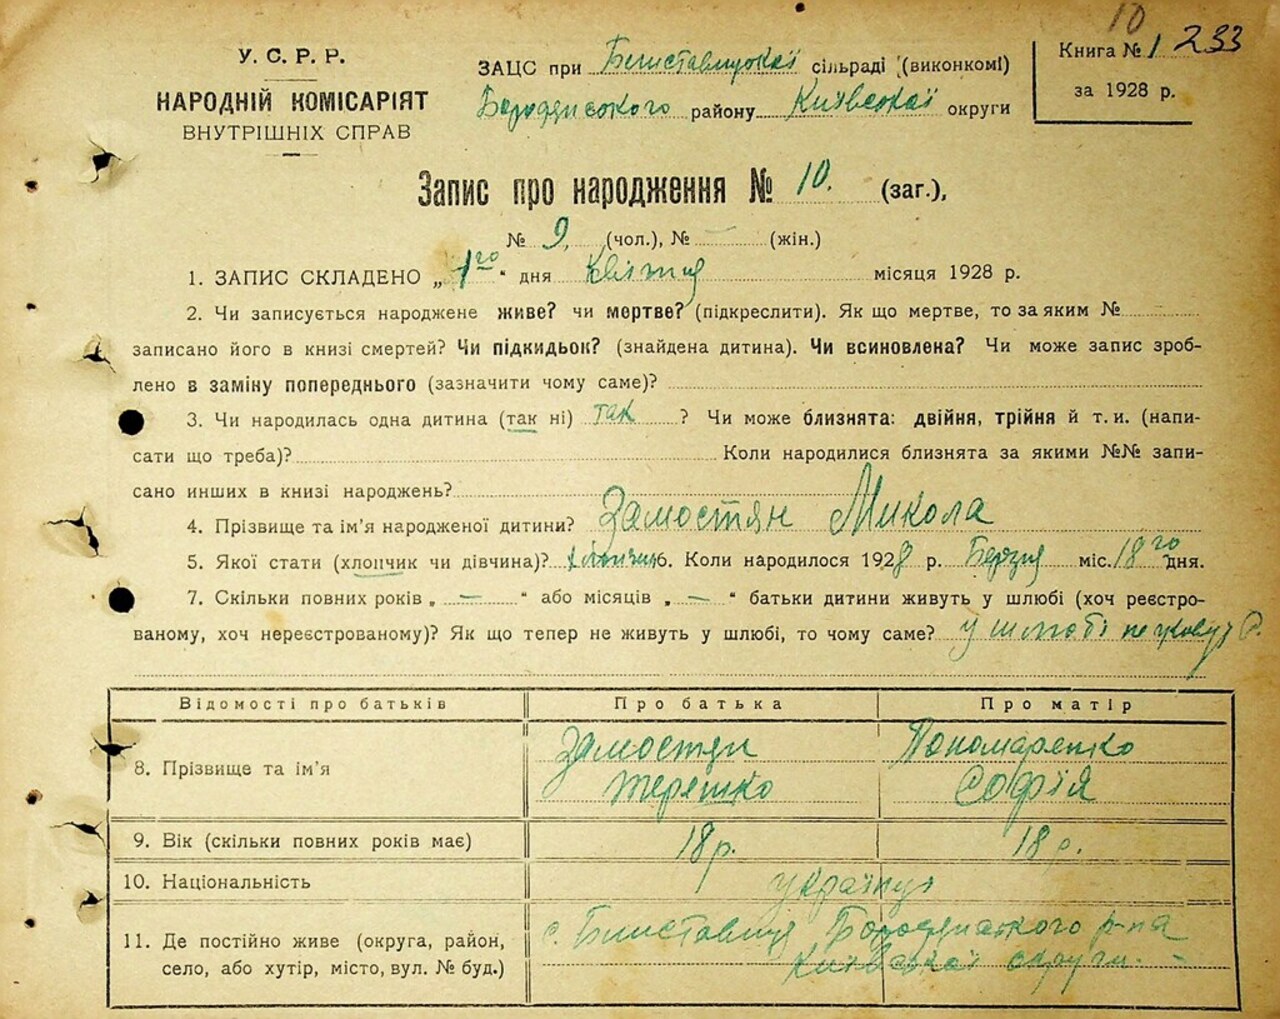 10
У. С. Р. Р.
НАРОДНІЙ КОМІСАРІЯТ
ВНУТРІШНІХ СПРАВ
ЗАЦС при Блиставицької сільраді (виконкомі)
Бородянського району Київської округи
Книга № 1 233
за 1928 р.
Запис про народження № 10. (заг.),
№ 9, (чол.), № – (жін.)
1. ЗАПИС СКЛАДЕНО „ 1го “ дня Квітня місяця 1928 р.
2. Чи записується народжене живе? чи мертве? (підкреслити). Як що мертве, то за яким №
записано його в книзі смертей? Чи підкидьок? (знайдена дитина). Чи всиновлена? Чи може запис зроб-
лено в заміну попереднього (зазначити чому саме)?
3. Чи народилась одна дитина (так ні) так ? Чи може близнята: двійня, трійня й т. и. (напи-
сати що треба)? Коли народилися близнята за якими №№ запи-
сано инших в книзі народжень?
4. Прізвище та ім’я народженої дитини? Замостян Микола
5. Якої стати (хлопчик чи дівчина)? 6. Коли народилося 1928 р. Берзня міс. 18го дня.
7. Скільки повних років „ — “ або місяців „ — “ батьки дитини живуть у шлюбі (хоч реєстро-
ваному, хоч нереєстрованому)? Як що тепер не живуть у шлюбі, то чому саме? у шлюбі не
Відомості про батьків Про батька Про матір
8. Прізвище та ім’я Замостян Терешко Пономаренко Софія
9. Вік (скільки повних років має) 18 р. 18 р.
10. Національність українці
11. Де постійно живе (округа, район, с. Блиставиця Бородянського р-на
село, або хутір, місто, вул. № буд.) Київської округи. –